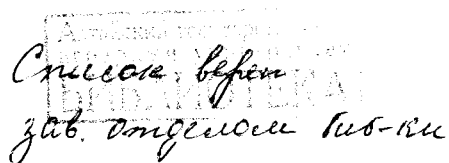 БИБЛИОТЕКА
Список верен
зав. отделом биб-ки